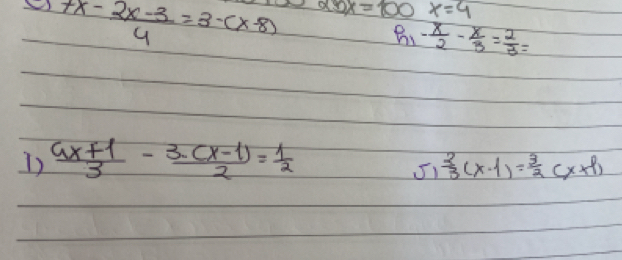 7x - 2x-3/4 = 3·(x-8)
x=100 x=4
h) -x/2 - x/3 = 2/3 =
I) 4x+1/3 - 3·(x-1)/2 = 1/2
J) 2/3 (x-1) = 3/2 (x+1)